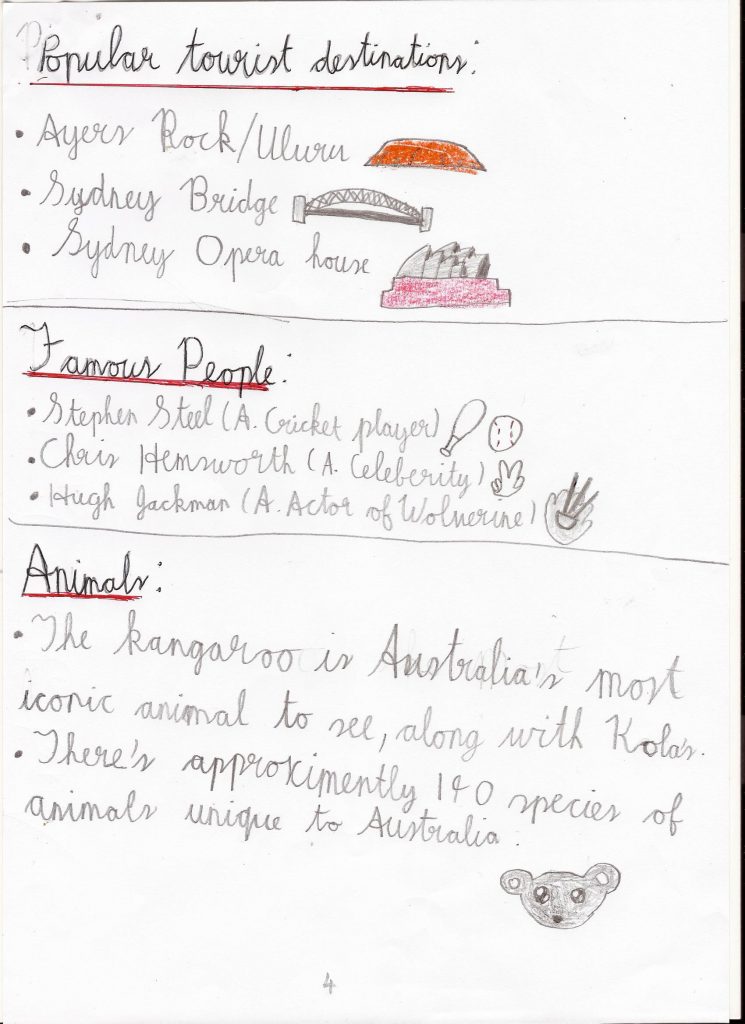 Popular tourist destinations:
• Ayers Rock/Uluru
• Sydney Bridge
• Sydney Opera house
Famous People:
• Stephen Steel (A. Cricket player)
• Chris Hemsworth (A. Celeberity)
• Hugh Jackman (A. Actor of Wolverine)
Animals:
• The kangaroo is Australia's most
iconic animal to see, along with Kola's.
• There's approximently 140 species of
animals unique to Australia.
4